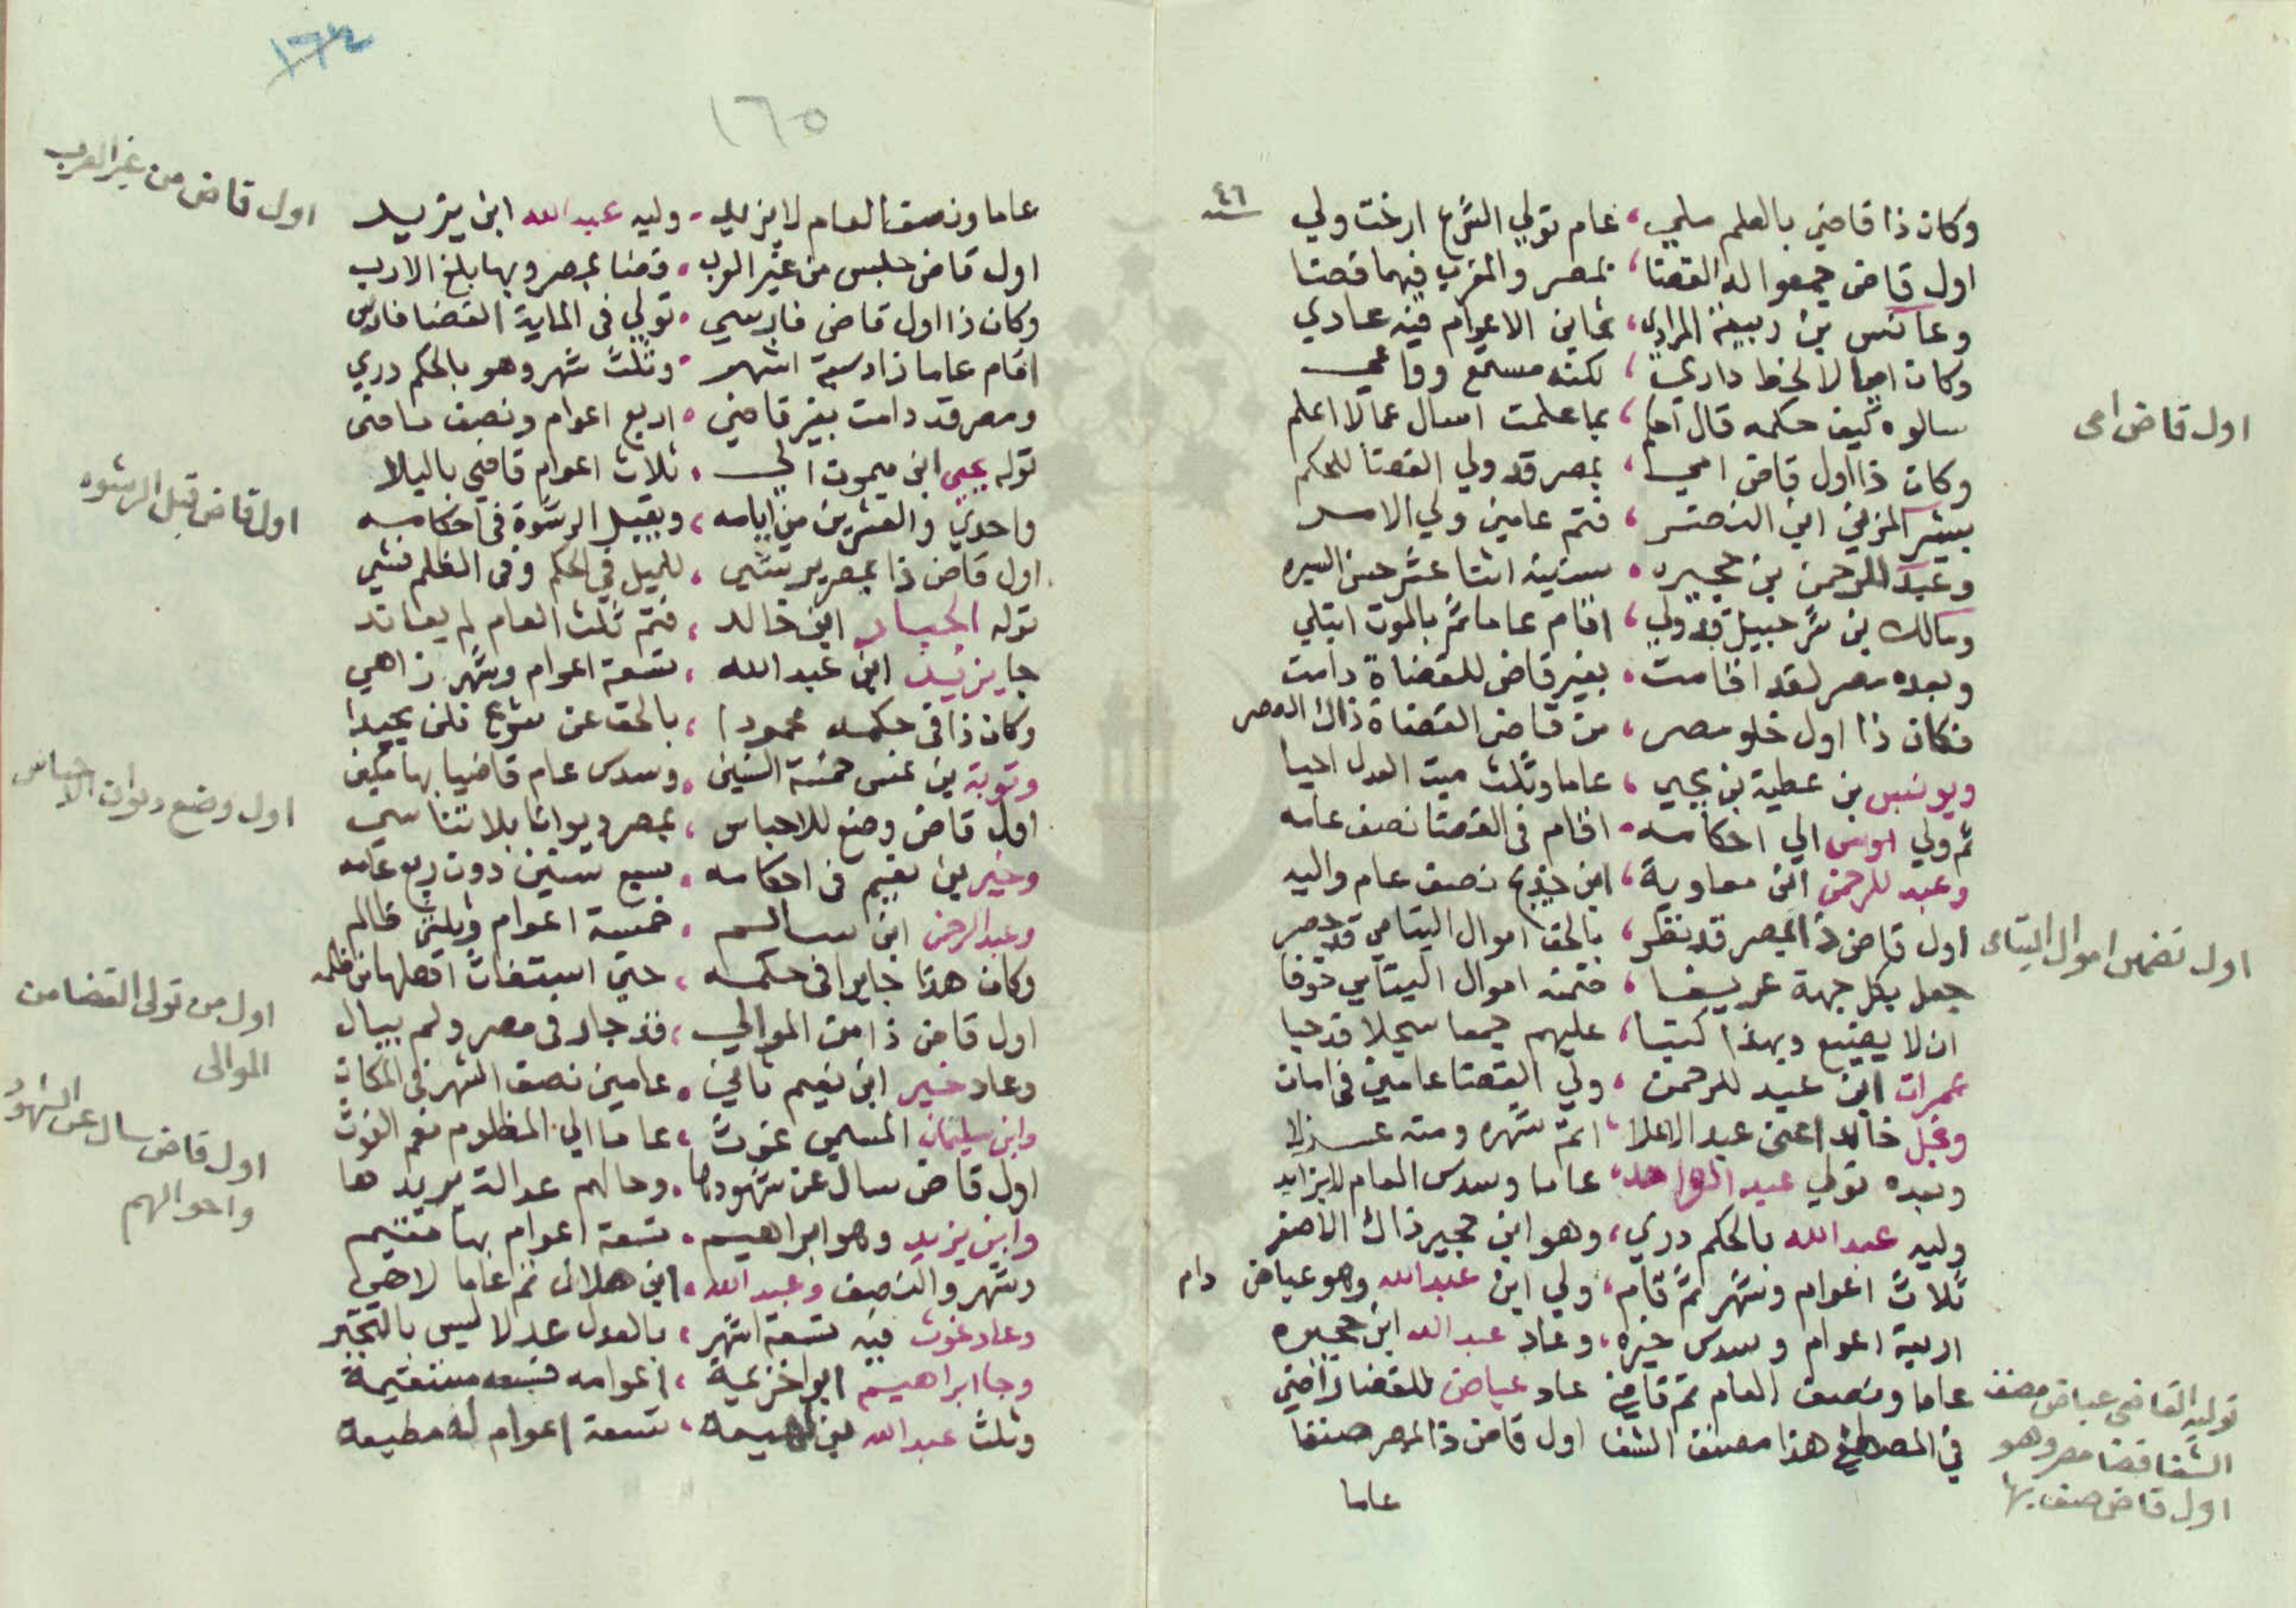 وكان ذا قاضي بالعلم ملي، عام تولي الشرع ارخت ولي
٤٦ سنه
اول قاض جمعوا له القضا، بمصر والمغرب فيهما قضا
وعابس بن ربيعة المرادي، ثمانين الاعوام فيه عادي
وكان اميا لا لخط داري، لكنه مستمع وواعي
سالوه كيف حكمه قال احكم، بما علمت اسال عما لا اعلم
وكان ذا اول قاض امي، بمصر قد ولي القضا للحكم
بشر المزني ابن النضر، فتم عامين ولي الامر
وعبد الرحمن بن حجيره، سنينه اثنا عشر حسن السيره
ومالك بن شرحبيل قد ولي، اقام عاما ثم بالموت ابتلي
وبعده مصر لقد اقامت، بغير قاض للقضاة دامت
فكان ذا اول خلو مصر، من قاض القضاة ذاك العصر
ويونس بن عطية بن يحيي، عاما وثلث ميت العدل احيا
ثم ولي اوس الي احكامه، اقام في القضا نصف عامه
وعبد للرحمن ابن معاوية، ابن خديج نصف عام واليه
اول قاض ذا بمصر قد نظر، بالحق اموال اليتامي قد حصر
جعل بكل جهة عريفا، ضمنه اموال اليتامي خوفا
ان لا يضيع وبهذا كتبا، عليهم جمعا سجلا قد حبا
عمران ابن عبد للرحمن، ولي القضا عامين في امان
ونجل خالد اعني عبد الاعلا، اتم شهره ومنه عزلا
وبعده تولي عبد الواحد، عاما وسدس العام لا يزايد
وليه عبد الله بالحكم دري، وهو ابن حجير ذاك الاصغر
ثلاث اعوام وشهر تم قام، ولي ابن عبد الله وهو عياض دام
اربعة اعوام وسدس خيره، وعاد عبد الله ابن حجيره
عاما ونصف العام تم قاضي عاد عياض للقضا راضي
في المصطفي هذا مصنف الشفا اول قاض ذا لمصر صنفا
عاما
اول قاض امي
اول تضمين اموال اليتامى
تولية القاضى عياض مصنف
الشفا قضا مصر وهو
اول قاض صنف بها
١٦٤
١٦٥
عاما ونصف العام لا يزيد، وليه عبد الله ابن يزيد
اول قاض جلس من غير العرب، قضا بمصر وبها بلغ الارب
وكان ذا اول قاض فارسي، تولي في الماية القضا فارس
اقام عاما زاد سبعة اشهر، وثلث شهر وهو بالحكم دري
ومصر قد دامت بغير قاضي، اربع اعوام ونصف ماضى
توله يحيى ابن ميمون الي، ثلاث اعوام قاضي باليلا
واحدي والعشرين من ايامه، ويقبل الرشوة في احكامه
اول قاض ذا بمصر يرتشي، للميل في الحكم وفي الظلم فشي
توله الخيار ابن خالد، فتم ثلث العام لم يعاند
جا يزيد ابن عبد الله، تسعة اعوام وشهر زاهي
وكان ذا في حكمه محمودا، بالحق عن شرع فلن يحيدا
وتوبة بن غنى خمسة السنين، وسدس عام قاضيا بها مكين
اول قاض وضع للاحباس، بمصر ديوانا بلا تناسي
وخير بن نعيم في احكامه، سبع سنين دون ربع عامه
وعبد الرحمن ابن سالم، خمسة اعوام وثلثي ظالم
وكان هذا جايرا في حكمه، حتي استغاث اهلها من ظلمه
اول قاض ذا من الموالي، قد جار في مصر ولم يبال
وعاد خير ابن نعيم ثاني، عامين نصف الشهر في المكان
وابن سليمان المسمي غوث، عاما الي المظلوم نعم الغوث
اول قاض سال عن شهودها، وحالهم عدالة يريدها
وابن يزيد وهو ابراهيم، تسعة اعوام بها مقيم
وشهر والنصف وعبد الله، ابن هلال تم عاما لاهي
وعاد غوث فيه تسعة اشهر، بالعدل عدلا ليس بالتجبر
وجا ابراهيم ابو اخزيمة، اعوامه تسعه مستقيمة
وثلث عبد الله بن لهيعه، تسعة اعوام له مطيعه
اول قاض من غير العرب
اول قاض قبل الرشوه
اول وضع ديوان الاحباس
اول من تولى القضا من
الموالى
اول قاض سال عن الشهود
واحوالهم